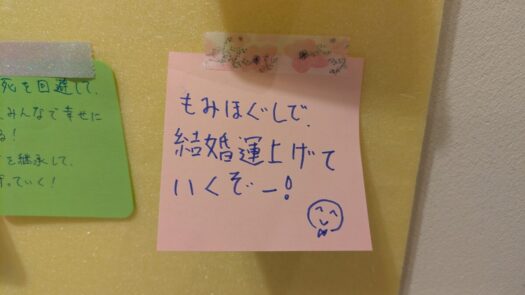 死を回避して、
みんなで幸せに
る!
を継承して、
っていく!
もみほぐしで、
結婚運上げて
いくぞー!